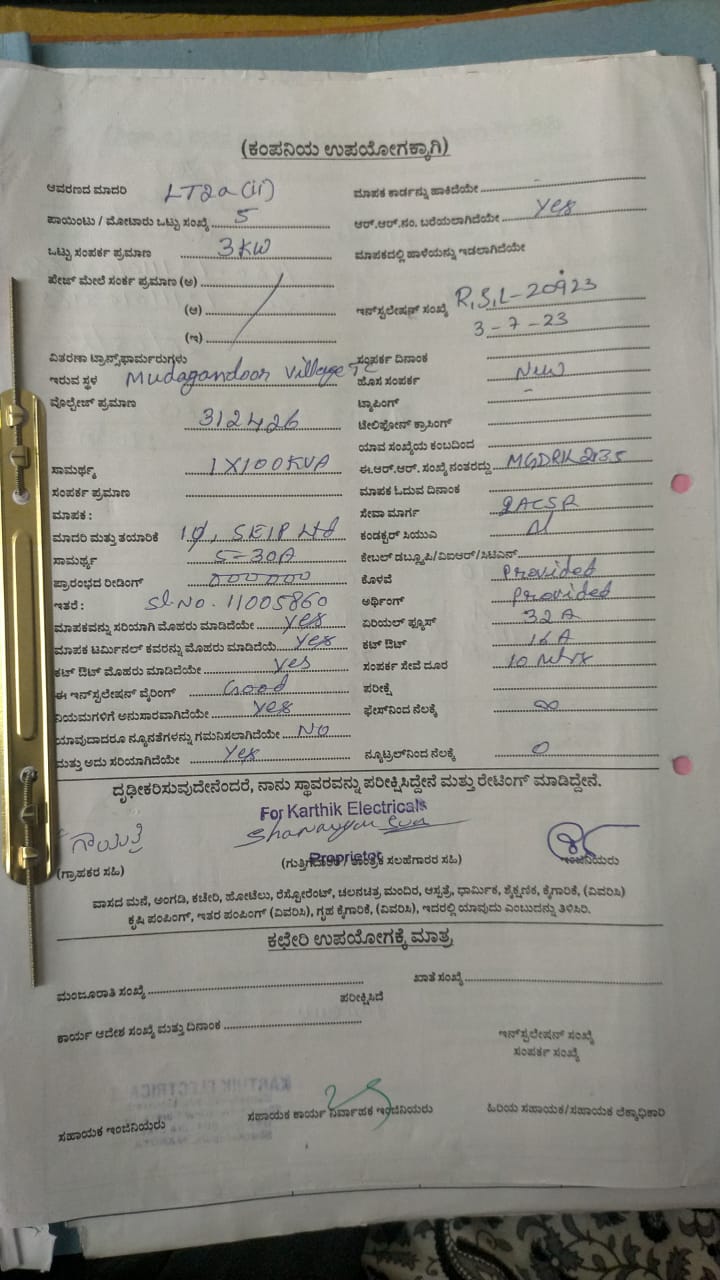 (ಕಂಪನಿಯ ಉಪಯೋಗಕ್ಕಾಗಿ)
ಆವರಣದ ಮಾದರಿ LT2a(ii)
ಮಾಪಕ ಕಾರ್ಡನ್ನು ಹಾಕಿದೆಯೇ
ಪಾಯಿಂಟು / ಮೋಟಾರು ಒಟ್ಟು ಸಂಖ್ಯೆ 5
ಆರ್.ಆರ್.ನಂ. ಬರೆಯಲಾಗಿದೆಯೇ yes
ಒಟ್ಟು ಸಂಪರ್ಕ ಪ್ರಮಾಣ 3KW
ಮಾಪಕದಲ್ಲಿ ಹಾಳೆಯನ್ನು ಇಡಲಾಗಿದೆಯೇ
ಪೇಜ್ ಮೇಲೆ ಸಂರ್ಕ ಪ್ರಮಾಣ (ಅ)
(ಆ)
(ಇ)
ಇನ್‌ಸ್ಟಲೇಷನ್ ಸಂಖ್ಯೆ R,S,L-20923
3-7-23
ವಿತರಣಾ ಟ್ರಾನ್ಸ್‌ಫಾರ್ಮರುಗಳು
ಸಂಪರ್ಕ ದಿನಾಂಕ
ಇರುವ ಸ್ಥಳ Mudagandoor Village TC
ಹೊಸ ಸಂಪರ್ಕ New
ವೋಲ್ಟೇಜ್ ಪ್ರಮಾಣ 312426
ಟ್ಯಾಪಿಂಗ್ -
ಟೆಲಿಫೋನ್ ಕ್ರಾಸಿಂಗ್
ಯಾವ ಸಂಖ್ಯೆಯ ಕಂಬದಿಂದ
ಸಾಮರ್ಥ್ಯ 1X100KVA
ಈ.ಆರ್.ಆರ್. ಸಂಖ್ಯೆ ನಂತರದ್ದು MGDRK2135
ಸಂಪರ್ಕ ಪ್ರಮಾಣ
ಮಾಪಕ ಓದುವ ದಿನಾಂಕ
ಮಾಪಕ :
ಸೇವಾ ಮಾರ್ಗ 2ACSR
ಮಾದರಿ ಮತ್ತು ತಯಾರಿಕೆ 1φ, SEIP Ltd
ಕಂಡಕ್ಟರ್ ಸಿಯುಎ
ಸಾಮರ್ಥ್ಯ 5-30A
ಕೇಬಲ್ ಡಬ್ಲ್ಯೂಪಿ/ವಿಐಆರ್/ಸಿಟಿಎಸ್
ಪ್ರಾರಂಭದ ರೀಡಿಂಗ್ 000000
ಕೊಳವೆ provided
ಇತರೆ : Sl.No. 11005860
ಅರ್ಥಿಂಗ್ provided
ಮಾಪಕವನ್ನು ಸರಿಯಾಗಿ ಮೊಹರು ಮಾಡಿದೆಯೇ yes
ಏರಿಯಲ್ ಫ್ಯೂಸ್ 32A
ಮಾಪಕ ಟರ್ಮಿನಲ್ ಕವರನ್ನು ಮೊಹರು ಮಾಡಿದೆಯೆ yes
ಕಟ್ ಔಟ್ 16A
ಕಟ್ ಔಟ್ ಮೊಹರು ಮಾಡಿದೆಯೇ yes
ಸಂಪರ್ಕ ಸೇವೆ ದೂರ 10 Mtrs
ಈ ಇನ್‌ಸ್ಟಲೇಷನ್ ವೈರಿಂಗ್ Good
ಪರೀಕ್ಷೆ
ನಿಯಮಗಳಿಗೆ ಅನುಸಾರವಾಗಿದೆಯೇ yes
ಫೇಸ್‌ನಿಂದ ನೆಲಕ್ಕೆ ∞
ಯಾವುದಾದರೂ ನ್ಯೂನತೆಗಳನ್ನು ಗಮನಿಸಲಾಗಿದೆಯೇ NO
ಮತ್ತು ಅದು ಸರಿಯಾಗಿದೆಯೇ yes
ನ್ಯೂಟ್ರಲ್‌ನಿಂದ ನೆಲಕ್ಕೆ 0
ದೃಢೀಕರಿಸುವುದೇನೆಂದರೆ, ನಾನು ಸ್ಥಾವರವನ್ನು ಪರೀಕ್ಷಿಸಿದ್ದೇನೆ ಮತ್ತು ರೇಟಿಂಗ್ ಮಾಡಿದ್ದೇನೆ.
For Karthik Electricals
ಗಾಯತ್ರಿ
Proprietor
(ಗ್ರಾಹಕರ ಸಹಿ)
(ಗುತ್ತಿಗೆದಾರರ / ತಾಂತ್ರಿಕ ಸಲಹೆಗಾರರ ಸಹಿ)
ಇಂಜಿನಿಯರು
ವಾಸದ ಮನೆ, ಅಂಗಡಿ, ಕಚೇರಿ, ಹೋಟೆಲು, ರೆಸ್ಟೋರೆಂಟ್, ಚಲನಚಿತ್ರ ಮಂದಿರ, ಆಸ್ಪತ್ರೆ, ಧಾರ್ಮಿಕ, ಶೈಕ್ಷಣಿಕ, ಕೈಗಾರಿಕೆ, (ವಿವರಿಸಿ)
ಕೃಷಿ ಪಂಪಿಂಗ್, ಇತರ ಪಂಪಿಂಗ್ (ವಿವರಿಸಿ), ಗೃಹ ಕೈಗಾರಿಕೆ, (ವಿವರಿಸಿ), ಇದರಲ್ಲಿ ಯಾವುದು ಎಂಬುದನ್ನು ತಿಳಿಸಿರಿ.
ಕಛೇರಿ ಉಪಯೋಗಕ್ಕೆ ಮಾತ್ರ
ಮಂಜೂರಾತಿ ಸಂಖ್ಯೆ
ಖಾತೆ ಸಂಖ್ಯೆ
ಪರೀಕ್ಷಿಸಿದೆ
ಕಾರ್ಯ ಆದೇಶ ಸಂಖ್ಯೆ ಮತ್ತು ದಿನಾಂಕ
ಇನ್‌ಸ್ಟಲೇಷನ್ ಸಂಖ್ಯೆ
ಸಂಪರ್ಕ ಸಂಖ್ಯೆ
ಸಹಾಯಕ ಇಂಜಿನಿಯರು
ಸಹಾಯಕ ಕಾರ್ಯ ನಿರ್ವಾಹಕ ಇಂಜಿನಿಯರು
ಹಿರಿಯ ಸಹಾಯಕ/ಸಹಾಯಕ ಲೆಕ್ಕಾಧಿಕಾರಿ